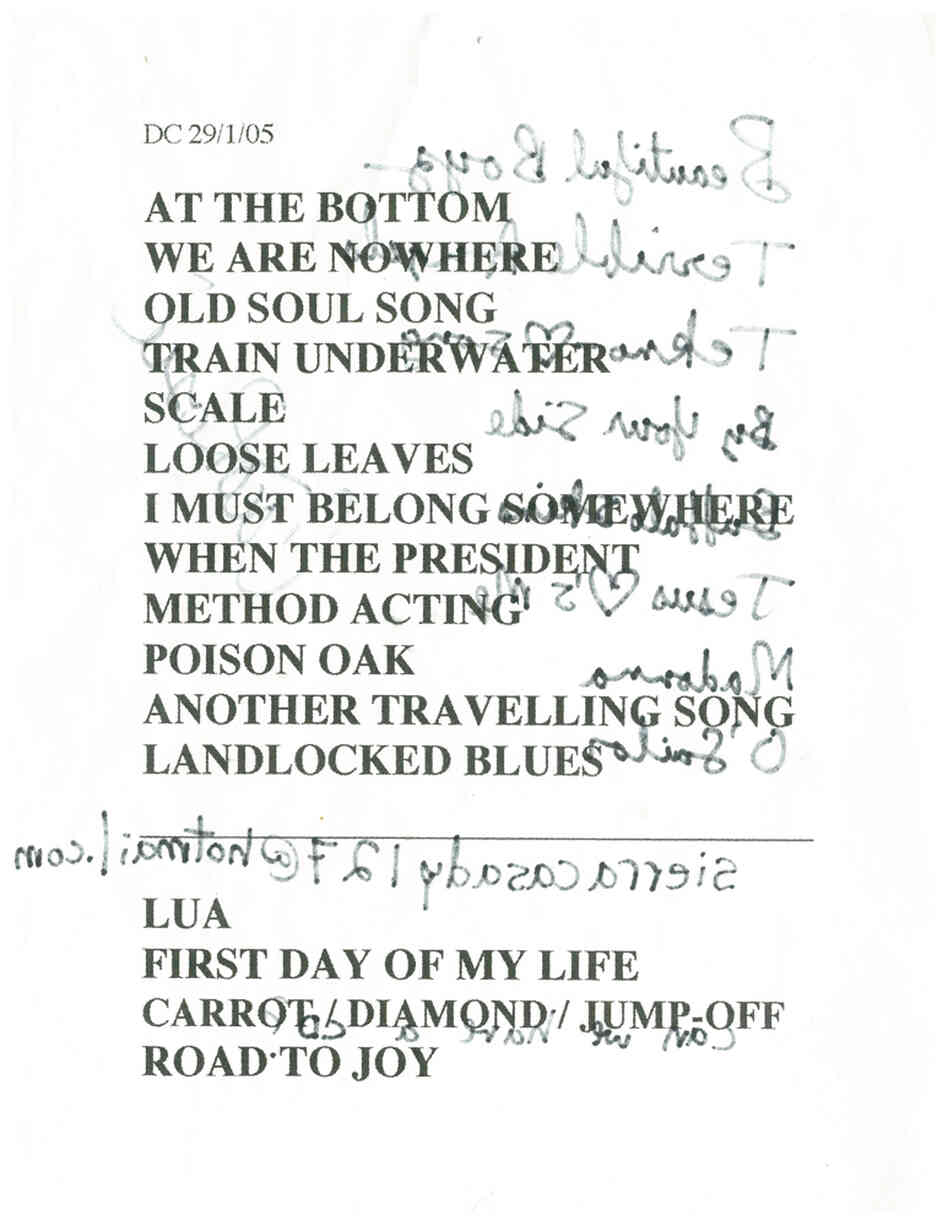 DC 29/1/05
Beautiful Boyz
AT THE BOTTOM
Terrible
WE ARE NOWHERE
OLD SOUL SONG
Tekno ♡ song
TRAIN UNDERWATER
SCALE
By Your Side
LOOSE LEAVES
I MUST BELONG SOMEWHERE
WHEN THE PRESIDENT
Jesus ♡'s Me
METHOD ACTING
POISON OAK
Madonna
ANOTHER TRAVELLING SONG
LANDLOCKED BLUES
sierracasady127@hotmail.com
LUA
FIRST DAY OF MY LIFE
CARROT / DIAMOND / JUMP-OFF
Can we have a CD?
ROAD TO JOY